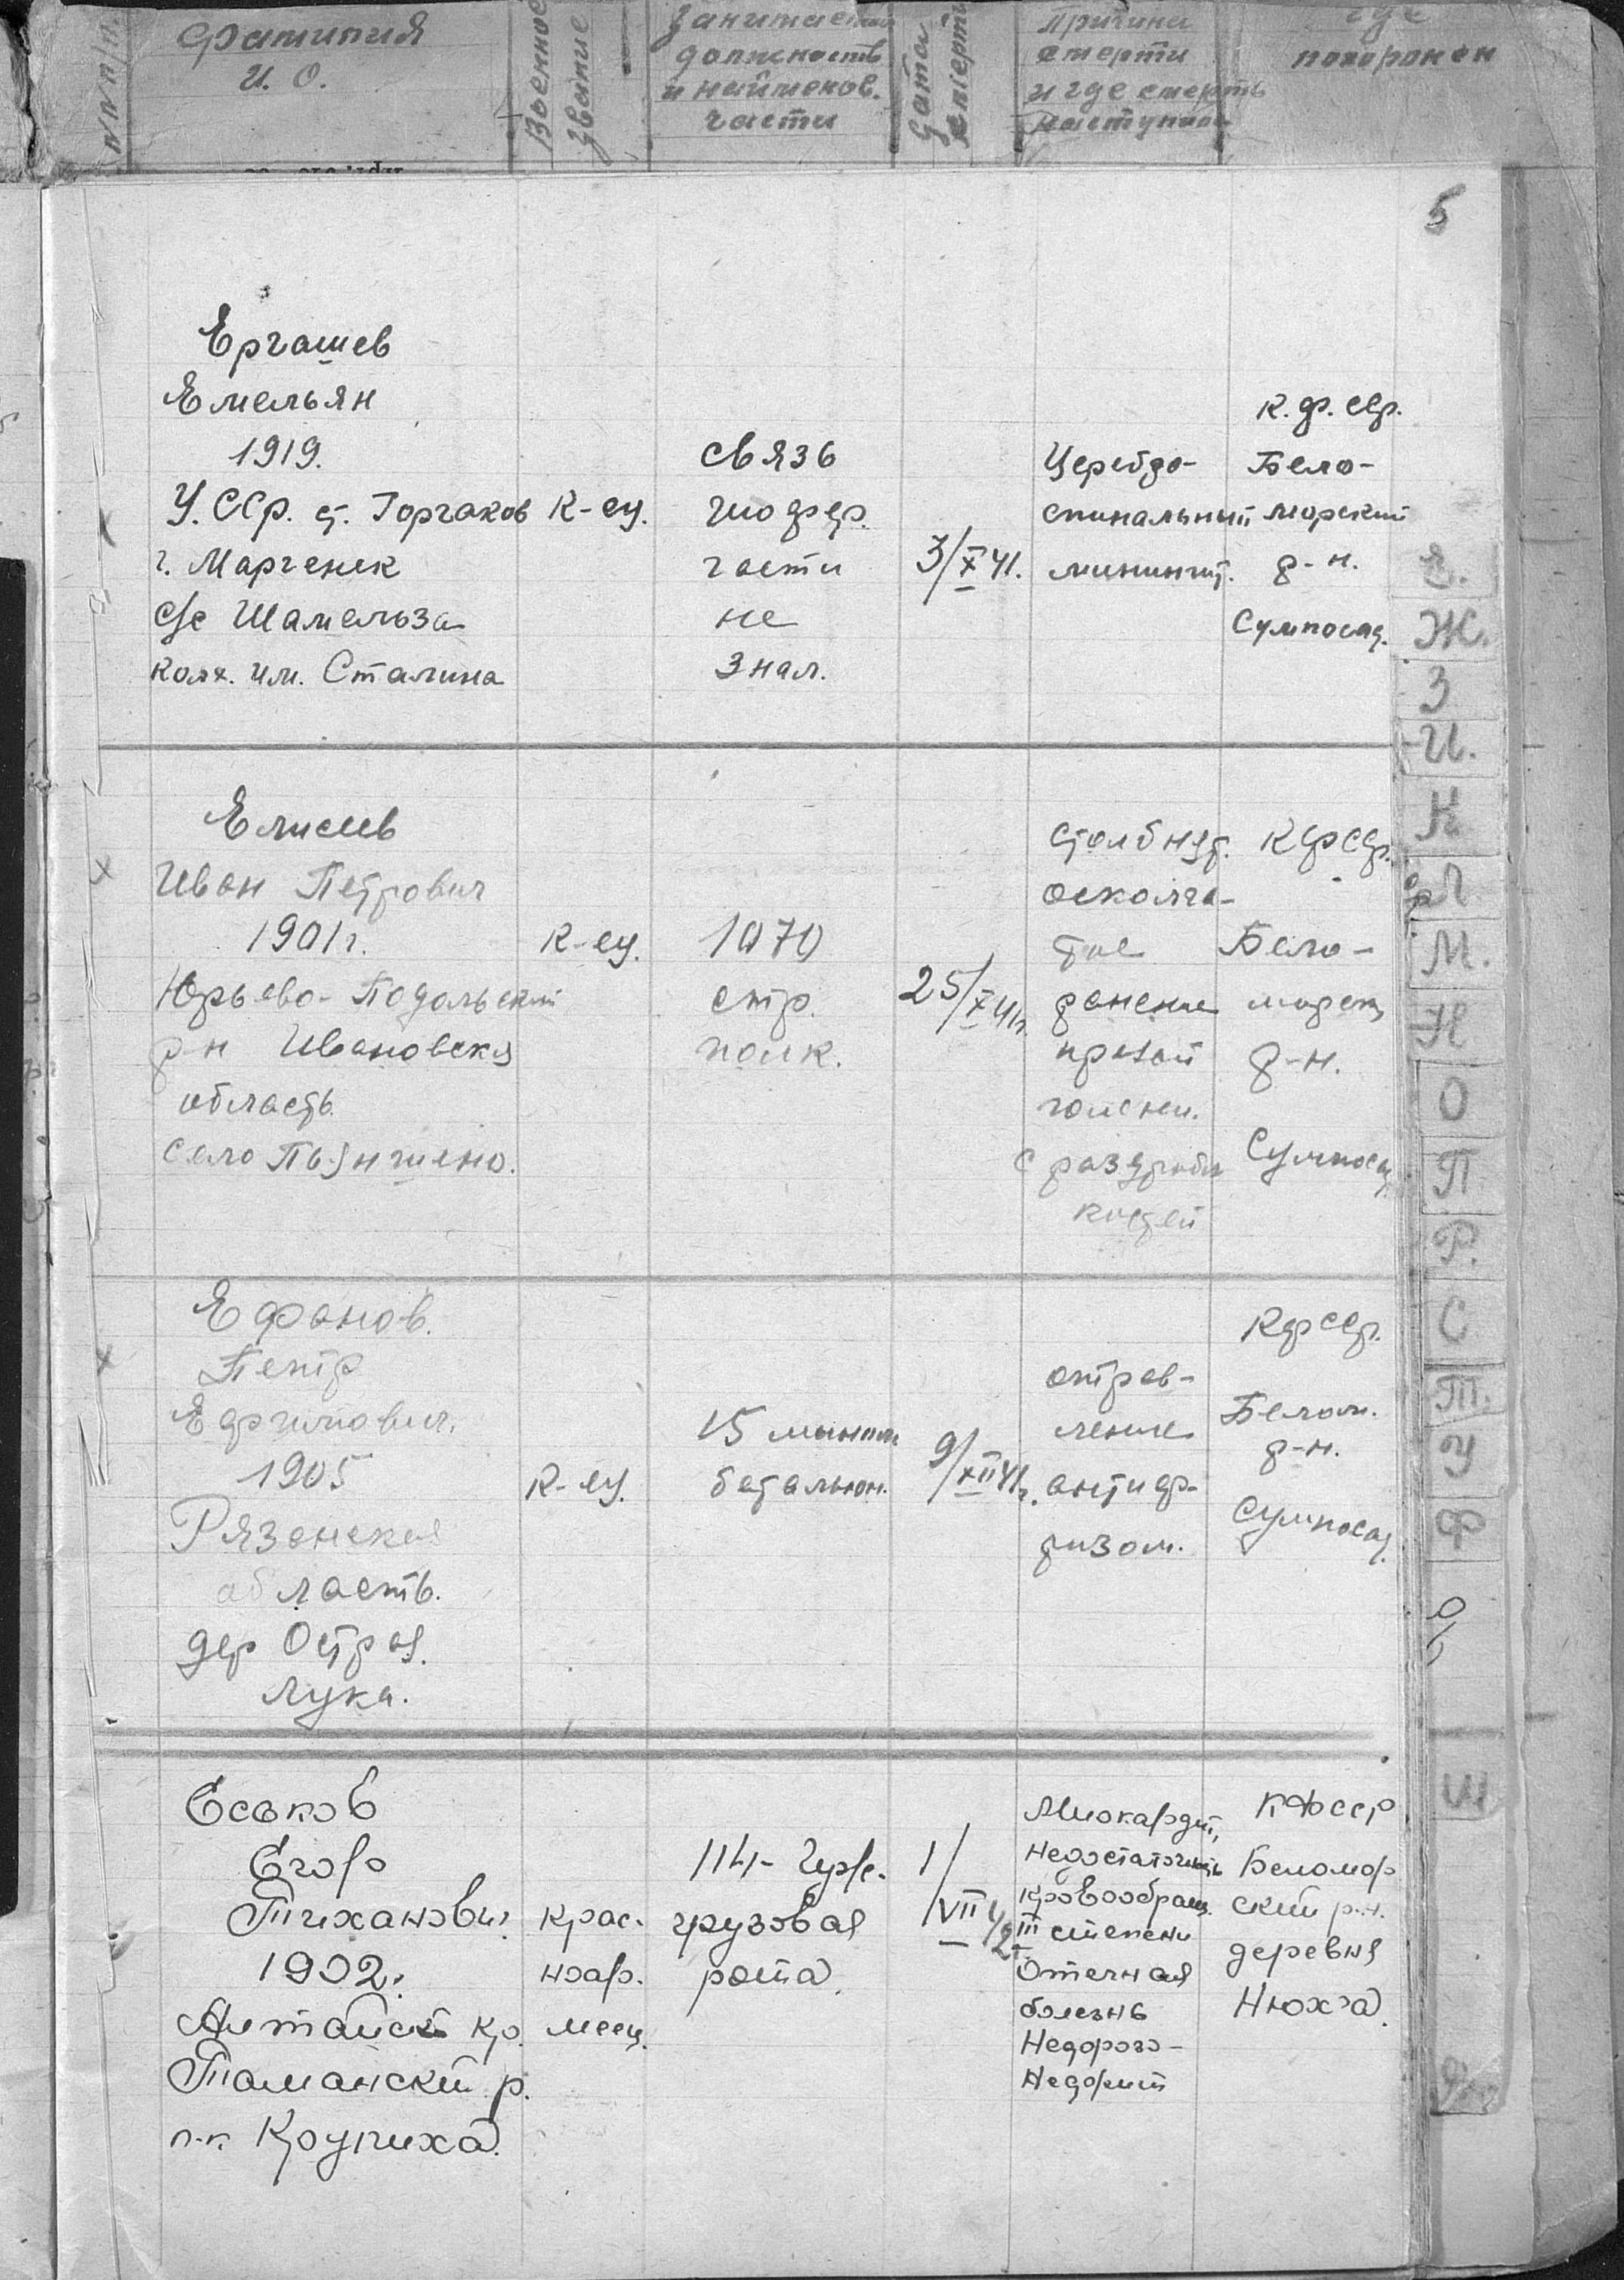 №№ п/п
Фамилия
И. О.
Военное
звание
Занимаемая
должность
и наименов.
части
Дата
смерти
Причина
смерти
и где смерть
наступила
где
похоронен
5
Ергашев
Емельян
1919.
У. ССр. ст. Горчаков
г. Маргенек
с/с Шамельза
колх. им. Сталина
К-ец.
связь
шофер.
части
не
знал.
3/X 41.
Церебро-
спинальный
минингит.
К. ф. сср.
Бело-
морский
р-н.
Сумпосад.
Елисеев
Иван Петрович
1901г.
Юрьево-Подольский
р-н Ивановская
область.
село
К-ец.
1070
стр.
полк.
25/X 41г.
столбняк.
осколча-
тое
ранение
правой
голени.
с раздробл
костей
КфСср.
Бело-
морск
р-н.
Сумпосад
Ефанов.
Петр
Ефимович.
1905
Рязанская
область.
дер Острая.
Лука.
К-ец.
15 мином
батальон.
9/XII 41г.
отрав-
ление
антиф-
ризом.
Кфсср.
Белом.
р-н.
Сумпосад
Еськов
Егор
Тиханович
1902.
Алтайск кр.
Таманский р.
п.п Крутиха.
Крас.
ноар.
меец.
114- Гуж.
грузовая
рота.
1/VII 42г.
Миокардит,
недостаточность
кровообращ.
III степени
Отечная
болезнь
Недорого-
Недорит
КФССР
Беломор
ский р.н.
деревня
Нюхча.
Е.
Ж.
З
И.
К
Л
М.
Н
О
П
Р.
С
Т.
У
Ф
Ш